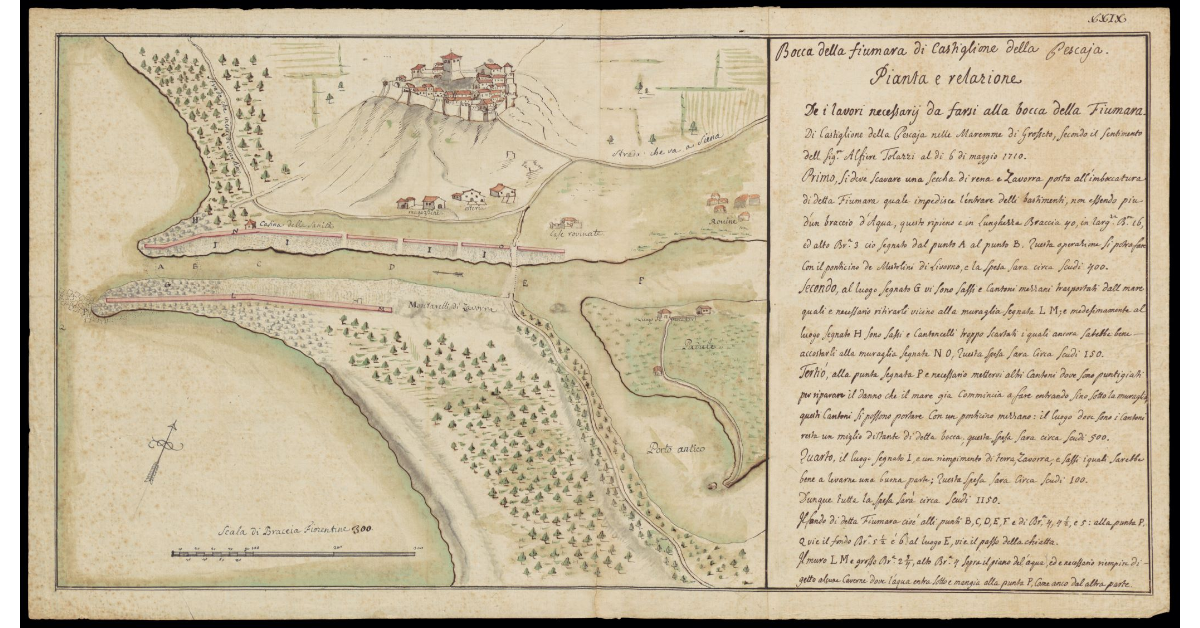 XXIX
Bocca della fiumara di Castiglione della Pescaja.
Pianta e relazione
De i lavori necessarij da farsi alla bocca della Fiumara
Di Castiglione della Pescaja nelle Maremme di Grosseto, secondo il sentimento
dell Sig.r Alfiere Tolazzi al di 6 di maggio 1710.
Primo, si deve scavare una seccha di rena e Zavorra posta all'imboccatura
di detta Fiumara quale impedisce l'entrare delli bastimenti, non essendo piu
d'un braccio d'Aqua, questo ripieno e in Lunghezza Braccia 40, in larg.za B.a 16,
ed alto Br.a 3 cio segnato dal punto A al punto B. Questa operatione si potra fare
Con il ponticino de Livorno, e la spesa sara circa Scudi 400.
Secondo, al luogo segnato G vi sono sassi e Cantoni mezzani trasportati dall mare
quali e necessario ritirarli vicino alla muraglia segnata L M; e medesimamente al
luogo segnato H sono sassi e Cantoncelli troppo scartati i quali ancora sarebbe bene
accostarli alla muraglia segnata N O, Questa spesa sara Circa Scudi 150.
Tertio, alla punta segnata P e necessario mettervi altri Cantoni dove sono puntigiati
per riparare il danno che il mare gia Commincia a fare entrando sino sotto la muraglia
questi Cantoni si possono portare Con un ponticino mezzano: il luogo dove sono i Cantoni
resta un miglio distante di detta bocca, questa spesa sara circa scudi 500.
Quarto, il luogo segnato I, e un riempimento di terra, Zavorra, e sassi i quali sarebbe
bene a levarne una buona parte; Questa spesa sara Circa Scudi 100.
Dunque tutta la spesa sarà circa Scudi 1150.
Il fondo di detta Fiumara cioè alli punti B, C, D, E, F e di Br.a 4, 4½, e 5: alla punta P,
Q vi e il fondo Br.a 5½ è 6 al luogo E, vi e il passo della chiatta.
Il muro L M e grosso Br.a 2½, alto Br.a 4 sopra il piano del aqua, ed e necessario riempir di
getto alcune Caverne dove l'aqua entra sotto e mangia alla punta P, Come anco dal altra parte
Strada che va a Siena
magazzini
osteria
Casina della Sanità
Case rovinate
Rovine
H
N
I
I
I
I
O
A
B
C
D
E
F
P
G
L
M
Q
Montarelli di Zavorra
Padule
Porto antico
Scala di Braccia Fiorentine 300
100
200
300